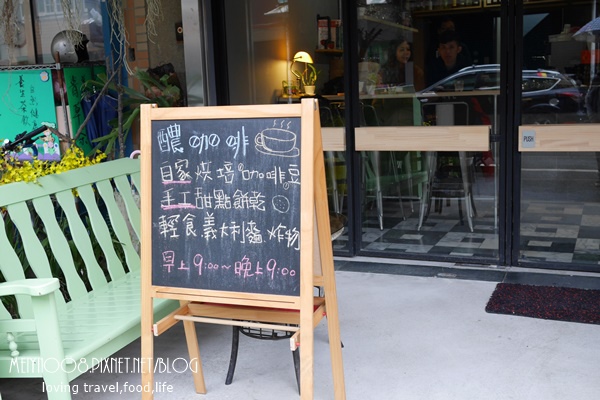 醲咖啡
自家烘培咖啡豆
手工甜點餅乾
輕食義大利麵、炸物
早上9:00~晚上9:00
PUSH
MEIYI1008.PIXNET.NET/BLOG
loving travel,food,life